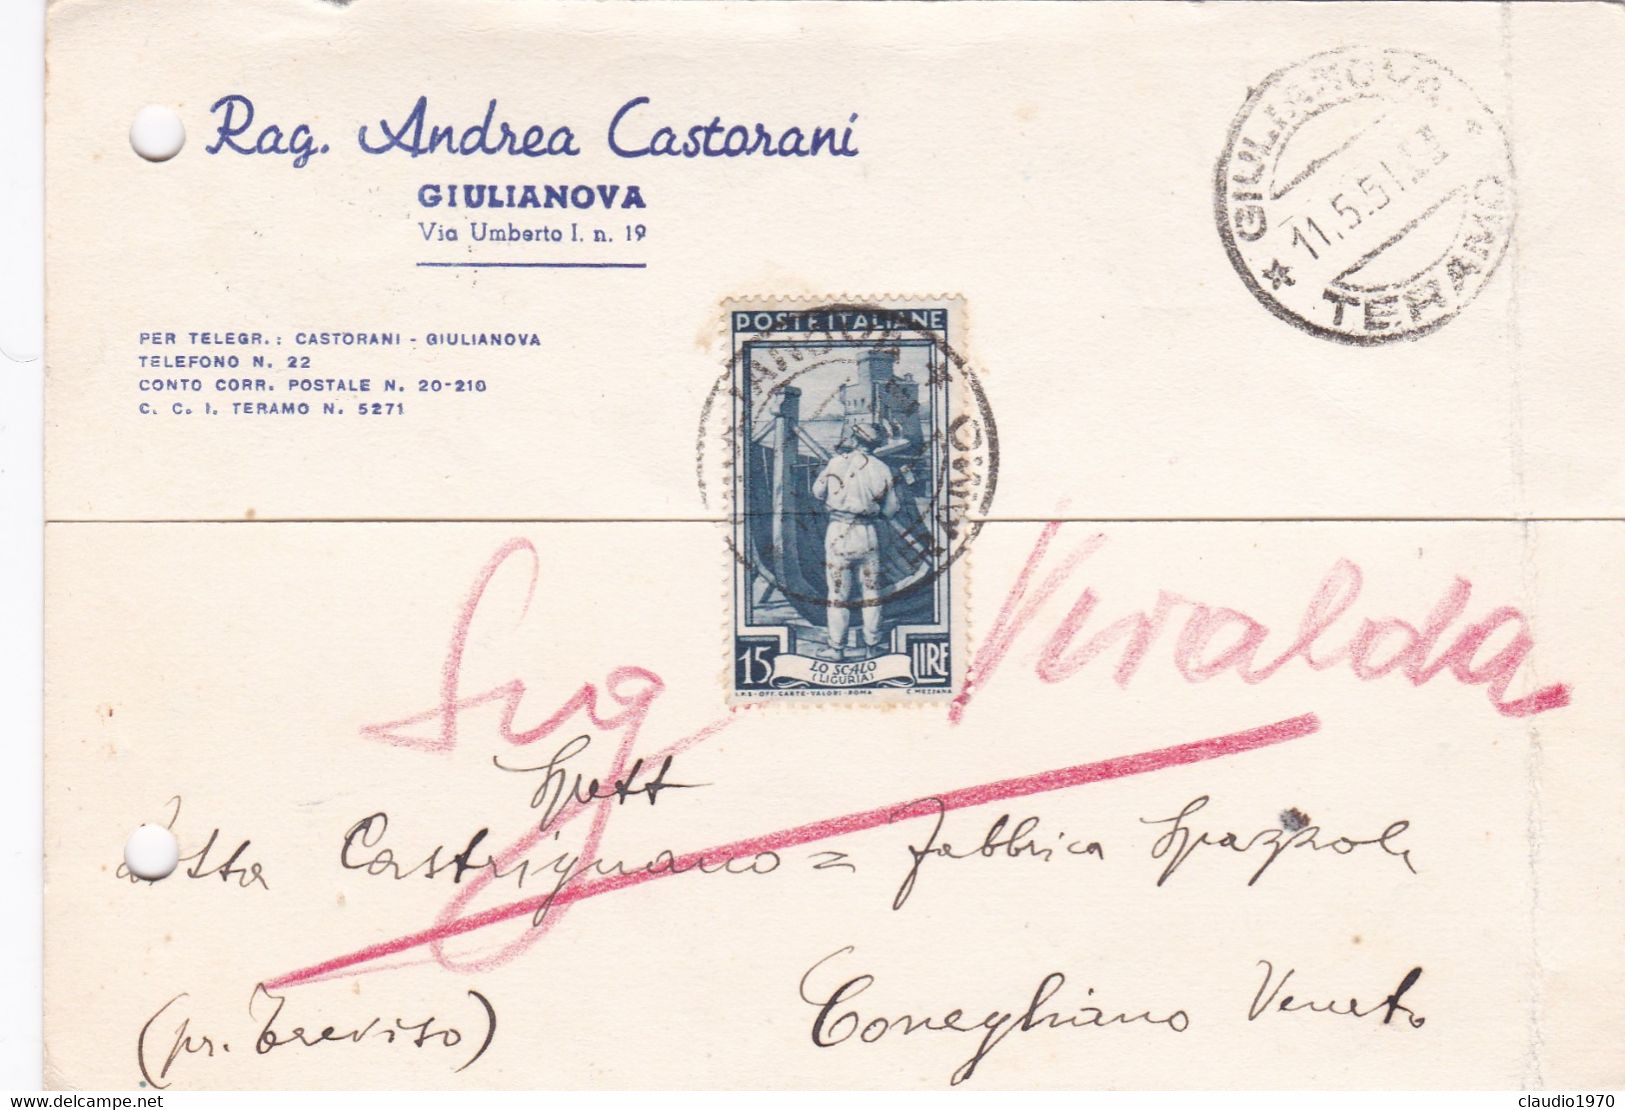 Rag. Andrea Castorani
GIULIANOVA
Via Umberto I. n. 19
PER TELEGR.: CASTORANI - GIULIANOVA
TELEFONO N. 22
CONTO CORR. POSTALE N. 20-210
C. C. I. TERAMO N. 5271
GIULIANOVA
11.5.51
* TERAMO
POSTE ITALIANE
15 LO SCALO LIRE
(LIGURIA)
I.P.S-OFF. CARTE-VALORI-ROMA C. MEZZANA
GIULIANOVA
TERAMO
Sig Viralda
Spett
Castrignano = Fabbrica Spazzole
(pr. Treviso) Conegliano Veneto
claudio1970